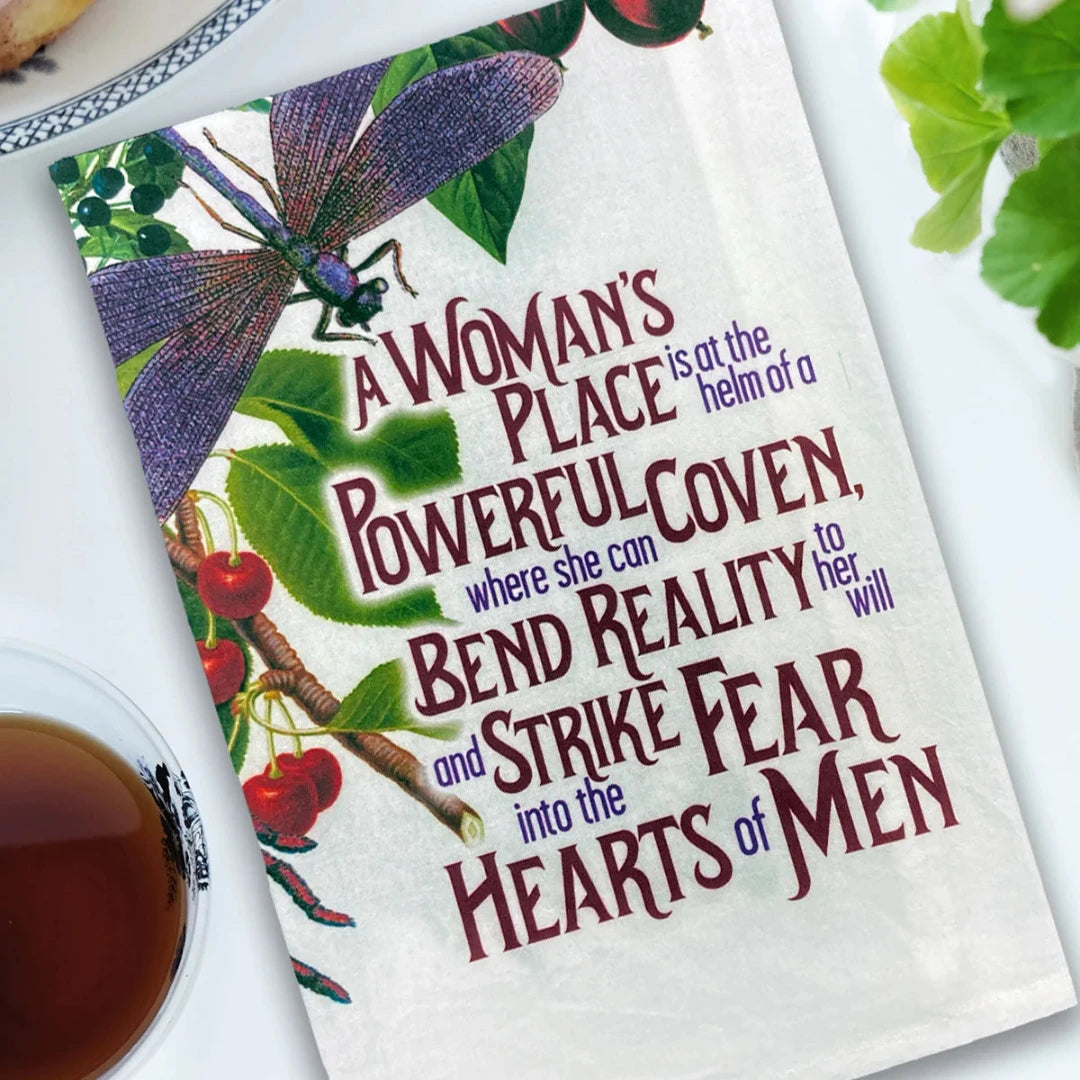 A WOMAN'S
PLACE is at the
helm of a
POWERFUL COVEN,
where she can
BEND REALITY to
her
will
and STRIKE FEAR
into the
HEARTS of MEN